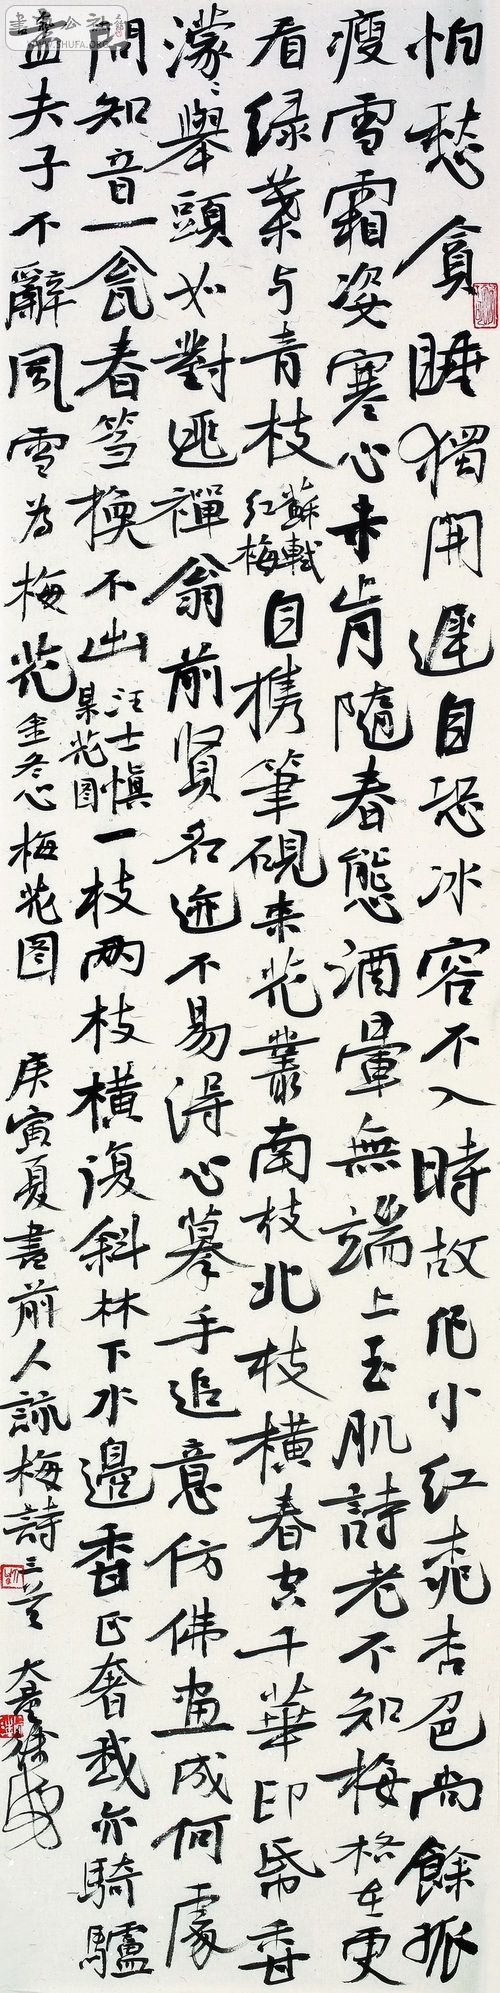 怕愁貪睡獨開遲自恐冰容不入時故作小红桃杏色尚餘孤
瘦雪霜姿寒心未肯隨春態酒暈無端上玉肌詩老不知梅格在更
看绿葉与青枝 蘇軾红梅 自携筆硯来花叢南枝北枝横春空千華印帋香
濛〻舉頭如對逃禪翁前贤名迹不易得心摹手追意仿佛畫成何處
問知音一瓮春芻換不出 汪士慎某花图 一枝两枝横復斜林下水邊香正奢我亦騎驢
孟夫子不辭風雪為梅花 金冬心梅花图 庚寅夏書前人詠梅詩三首
書藝公社
WWW.SHUFA.ORG